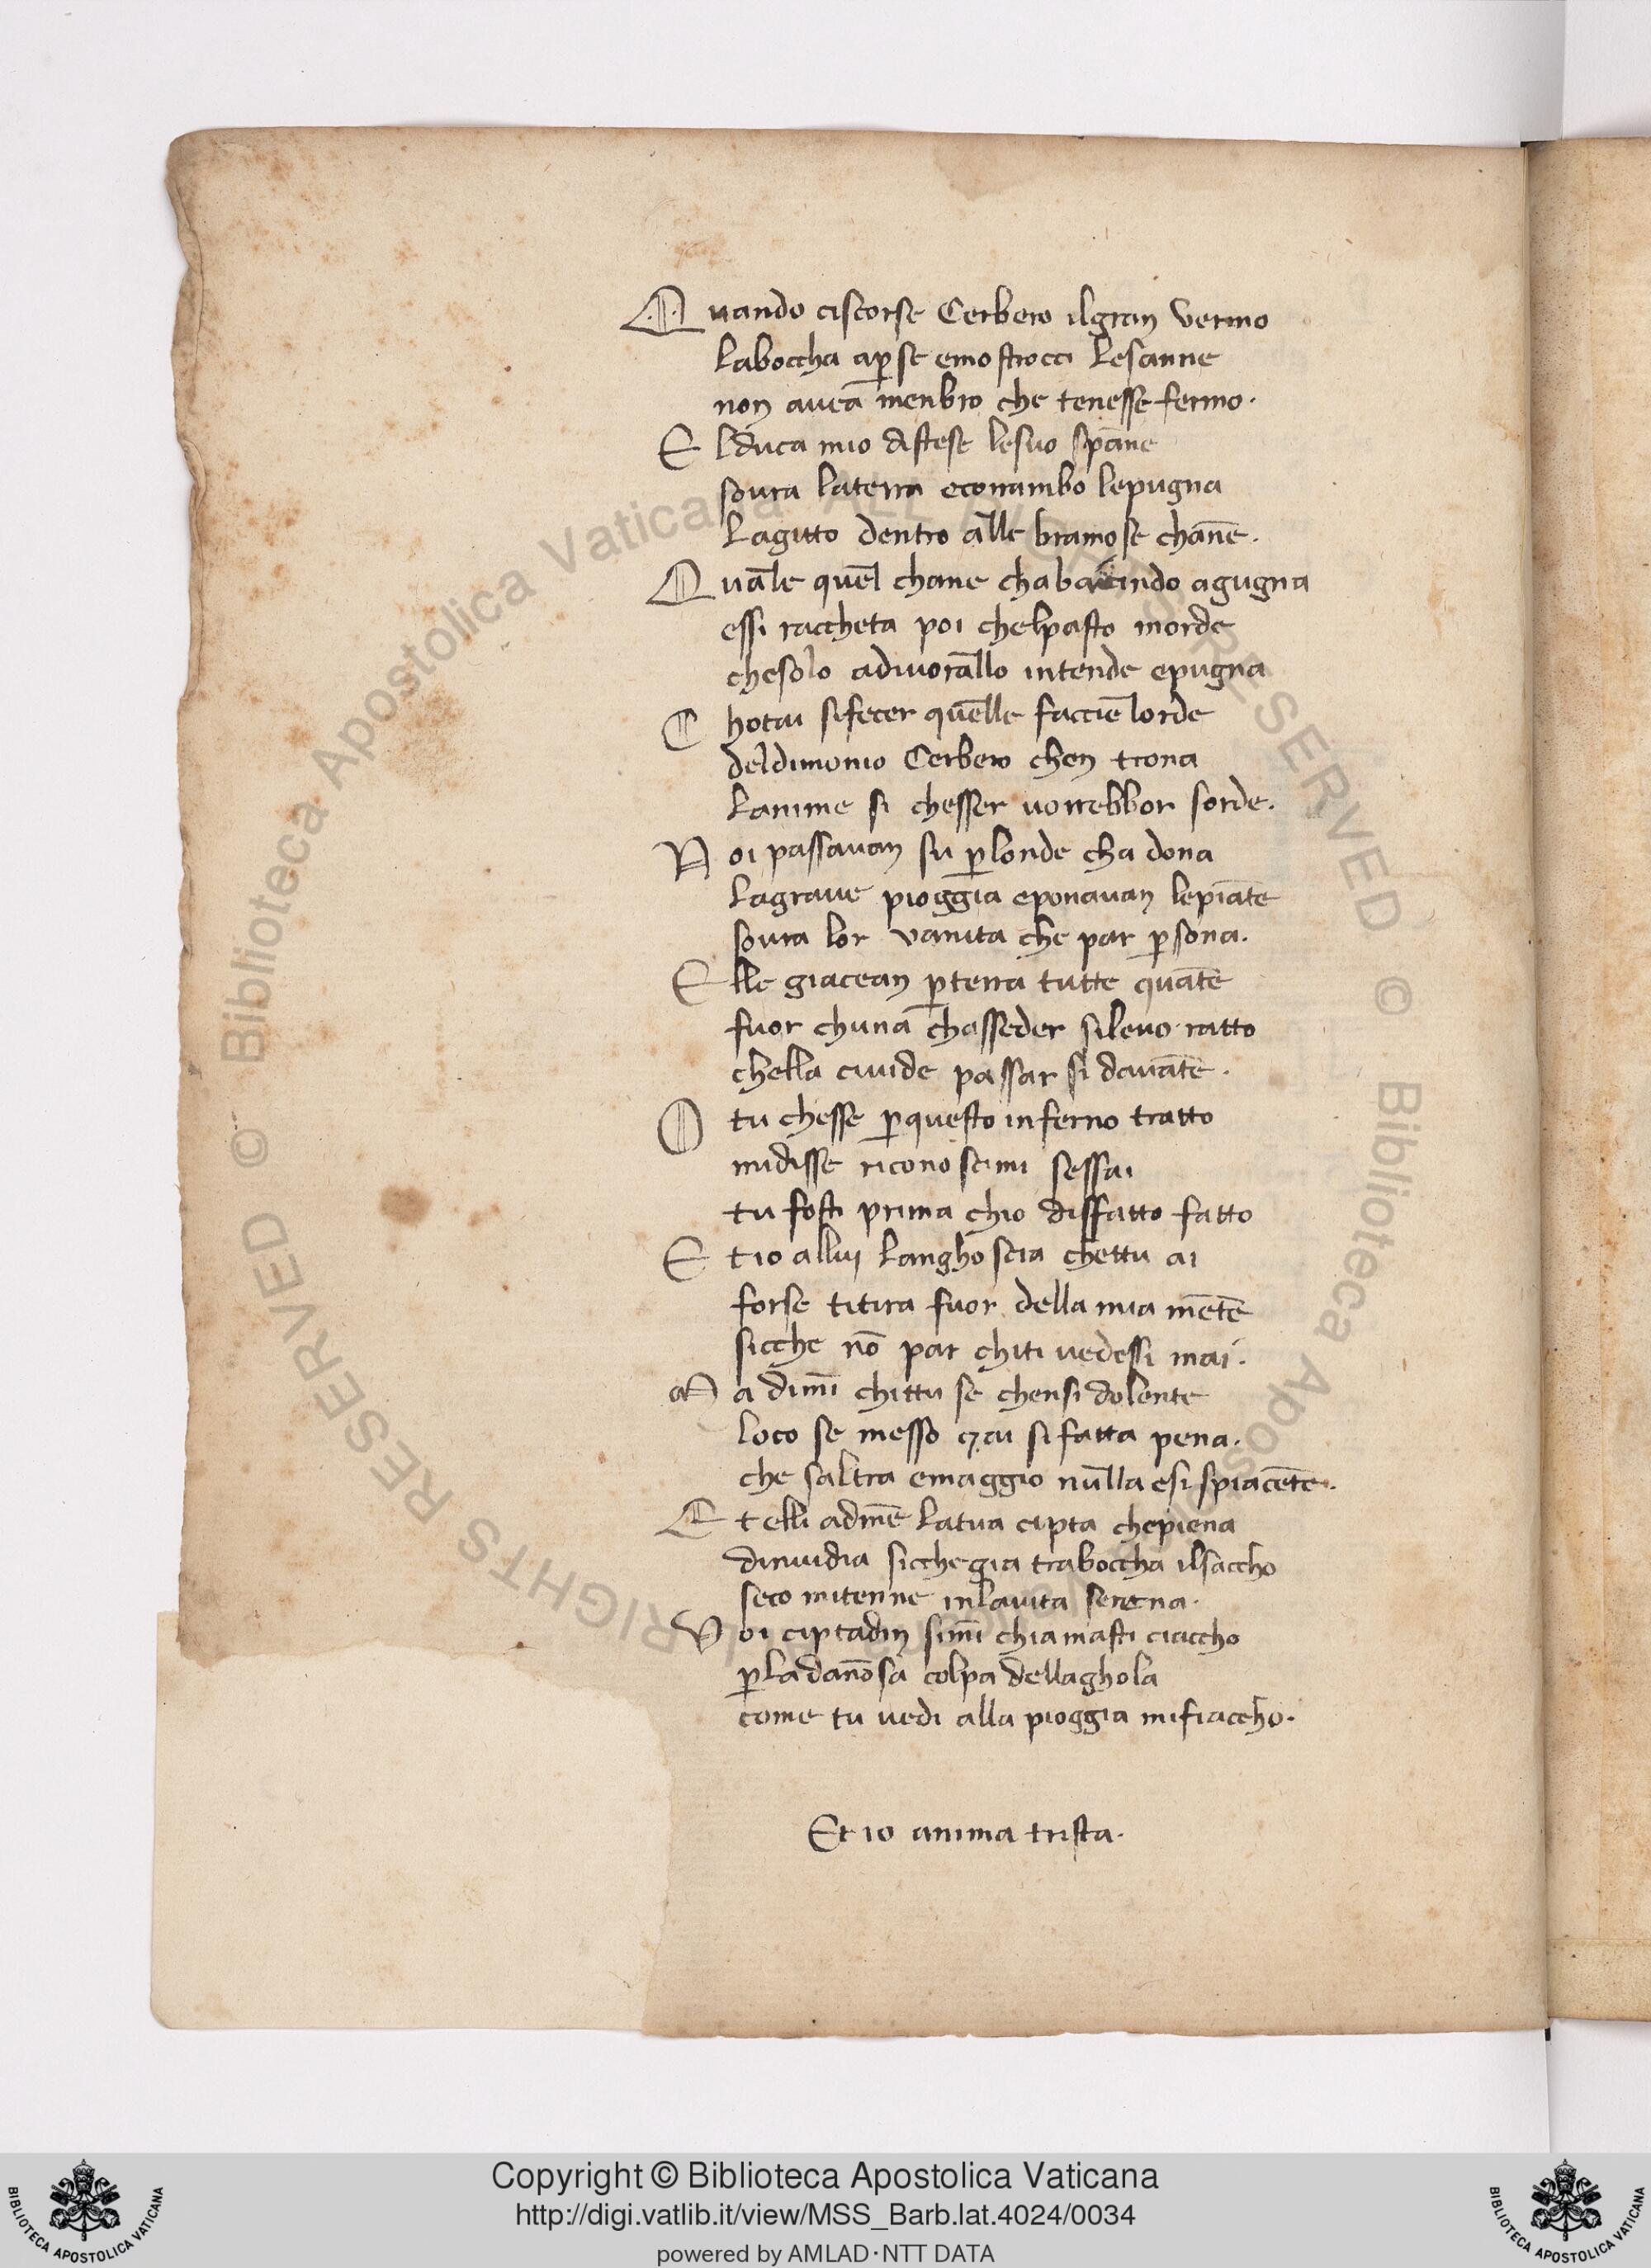 Quando ciscorse Cerbero ilgran vermo
laboccha aꝑse emostrocci lesanne
non aueā menbro che tenesse fermo.
E lduca mio distese lesuo spāne
soura laterra econambo lepugna
lagitto dentro alle bramose chāne.
Quale quel chane chabaiando agugna
essi raccheta poi chelpasto morde
chesolo adiuorallo intende epugna
Chotai sifecer quelle faccie lorde
deldimonio Cerbero chen trona
lanime si chesser uorrebbor sorde.
Noi passauan su ꝑlonde cha dona
lagraue pioggia eponauan lepiāte
soura lor vanita che par ꝑsona.
Elle giacean ꝑterra tutte quāte
fuor chuna chasseder sileuo ratto
chella ciuide passar si dauāte.
O tu chesse ꝑquesto inferno tratto
midisse riconoscimi sessai
tu fosti prima chio disfatto fatto
Et io allui langhoscia chettu ai
forse titira fuor della mia mēte
sicche nō par chiti uedessi mai.
Ma dimī chittu se chensi dolente
loco se messo ꝯai si fatta pena.
che saltra emaggio nulla esi spiacēte.
Et elli admē latua cipta chepiena
dinuidia sicchegia traboccha ilsaccho
seco mitenne inlauita serena.
Voi ciptadin simī chiamasti ciaccho
ꝑladanosa colpa dellaghola
come tu uedi alla pioggia mifiaccho.
Et io anima trista.
© Biblioteca Apostolica Vaticana ALL RIGHTS RESERVED © Biblioteca Apostolica Vaticana ALL RIGHTS RESERVED
Copyright © Biblioteca Apostolica Vaticana
http://digi.vatlib.it/view/MSS_Barb.lat.4024/0034
powered by AMLAD·NTT DATA
BIBLIOTECA APOSTOLICA VATICANA
BIBLIOTECA APOSTOLICA VATICANA